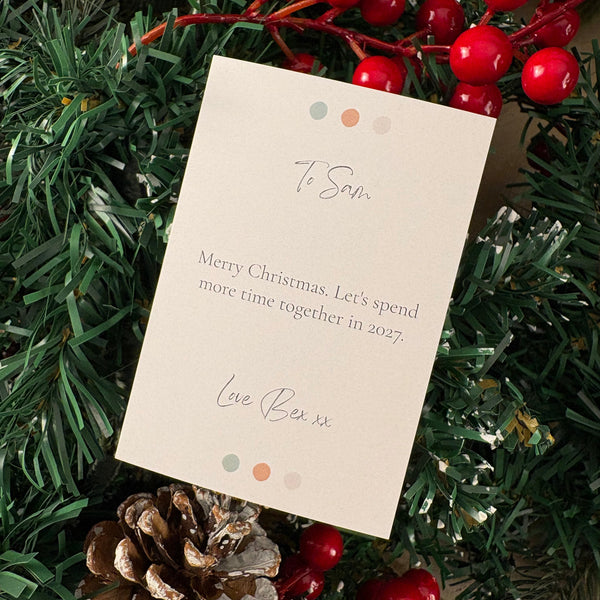 To Sam
Merry Christmas. Let's spend
more time together in 2027.
Love Bex xx